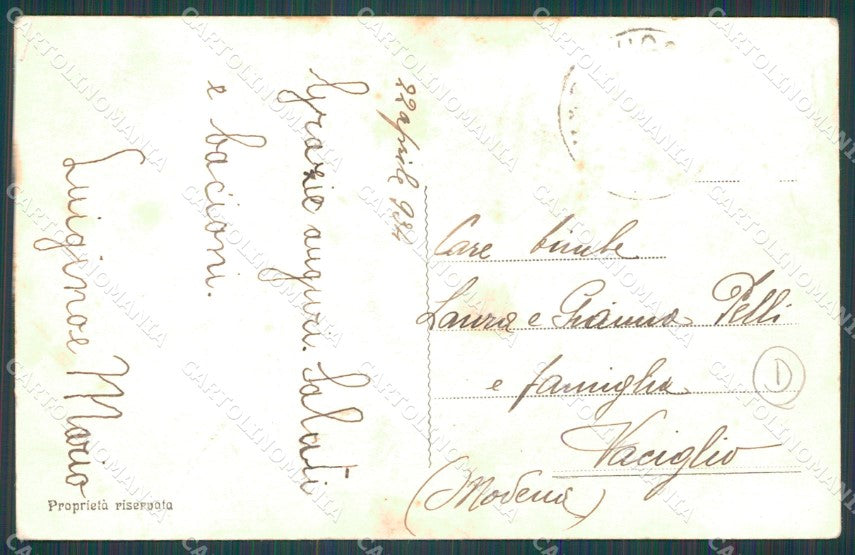 22 aprile 934
Grazie auguri. Saluti
e bacioni.
Luigino e Mario
Care bimbe
Laura e Gianna Pelli
e famiglia
Vaciglio
(Modena)
D
Proprietà riservata
CARTOLINOMANIA